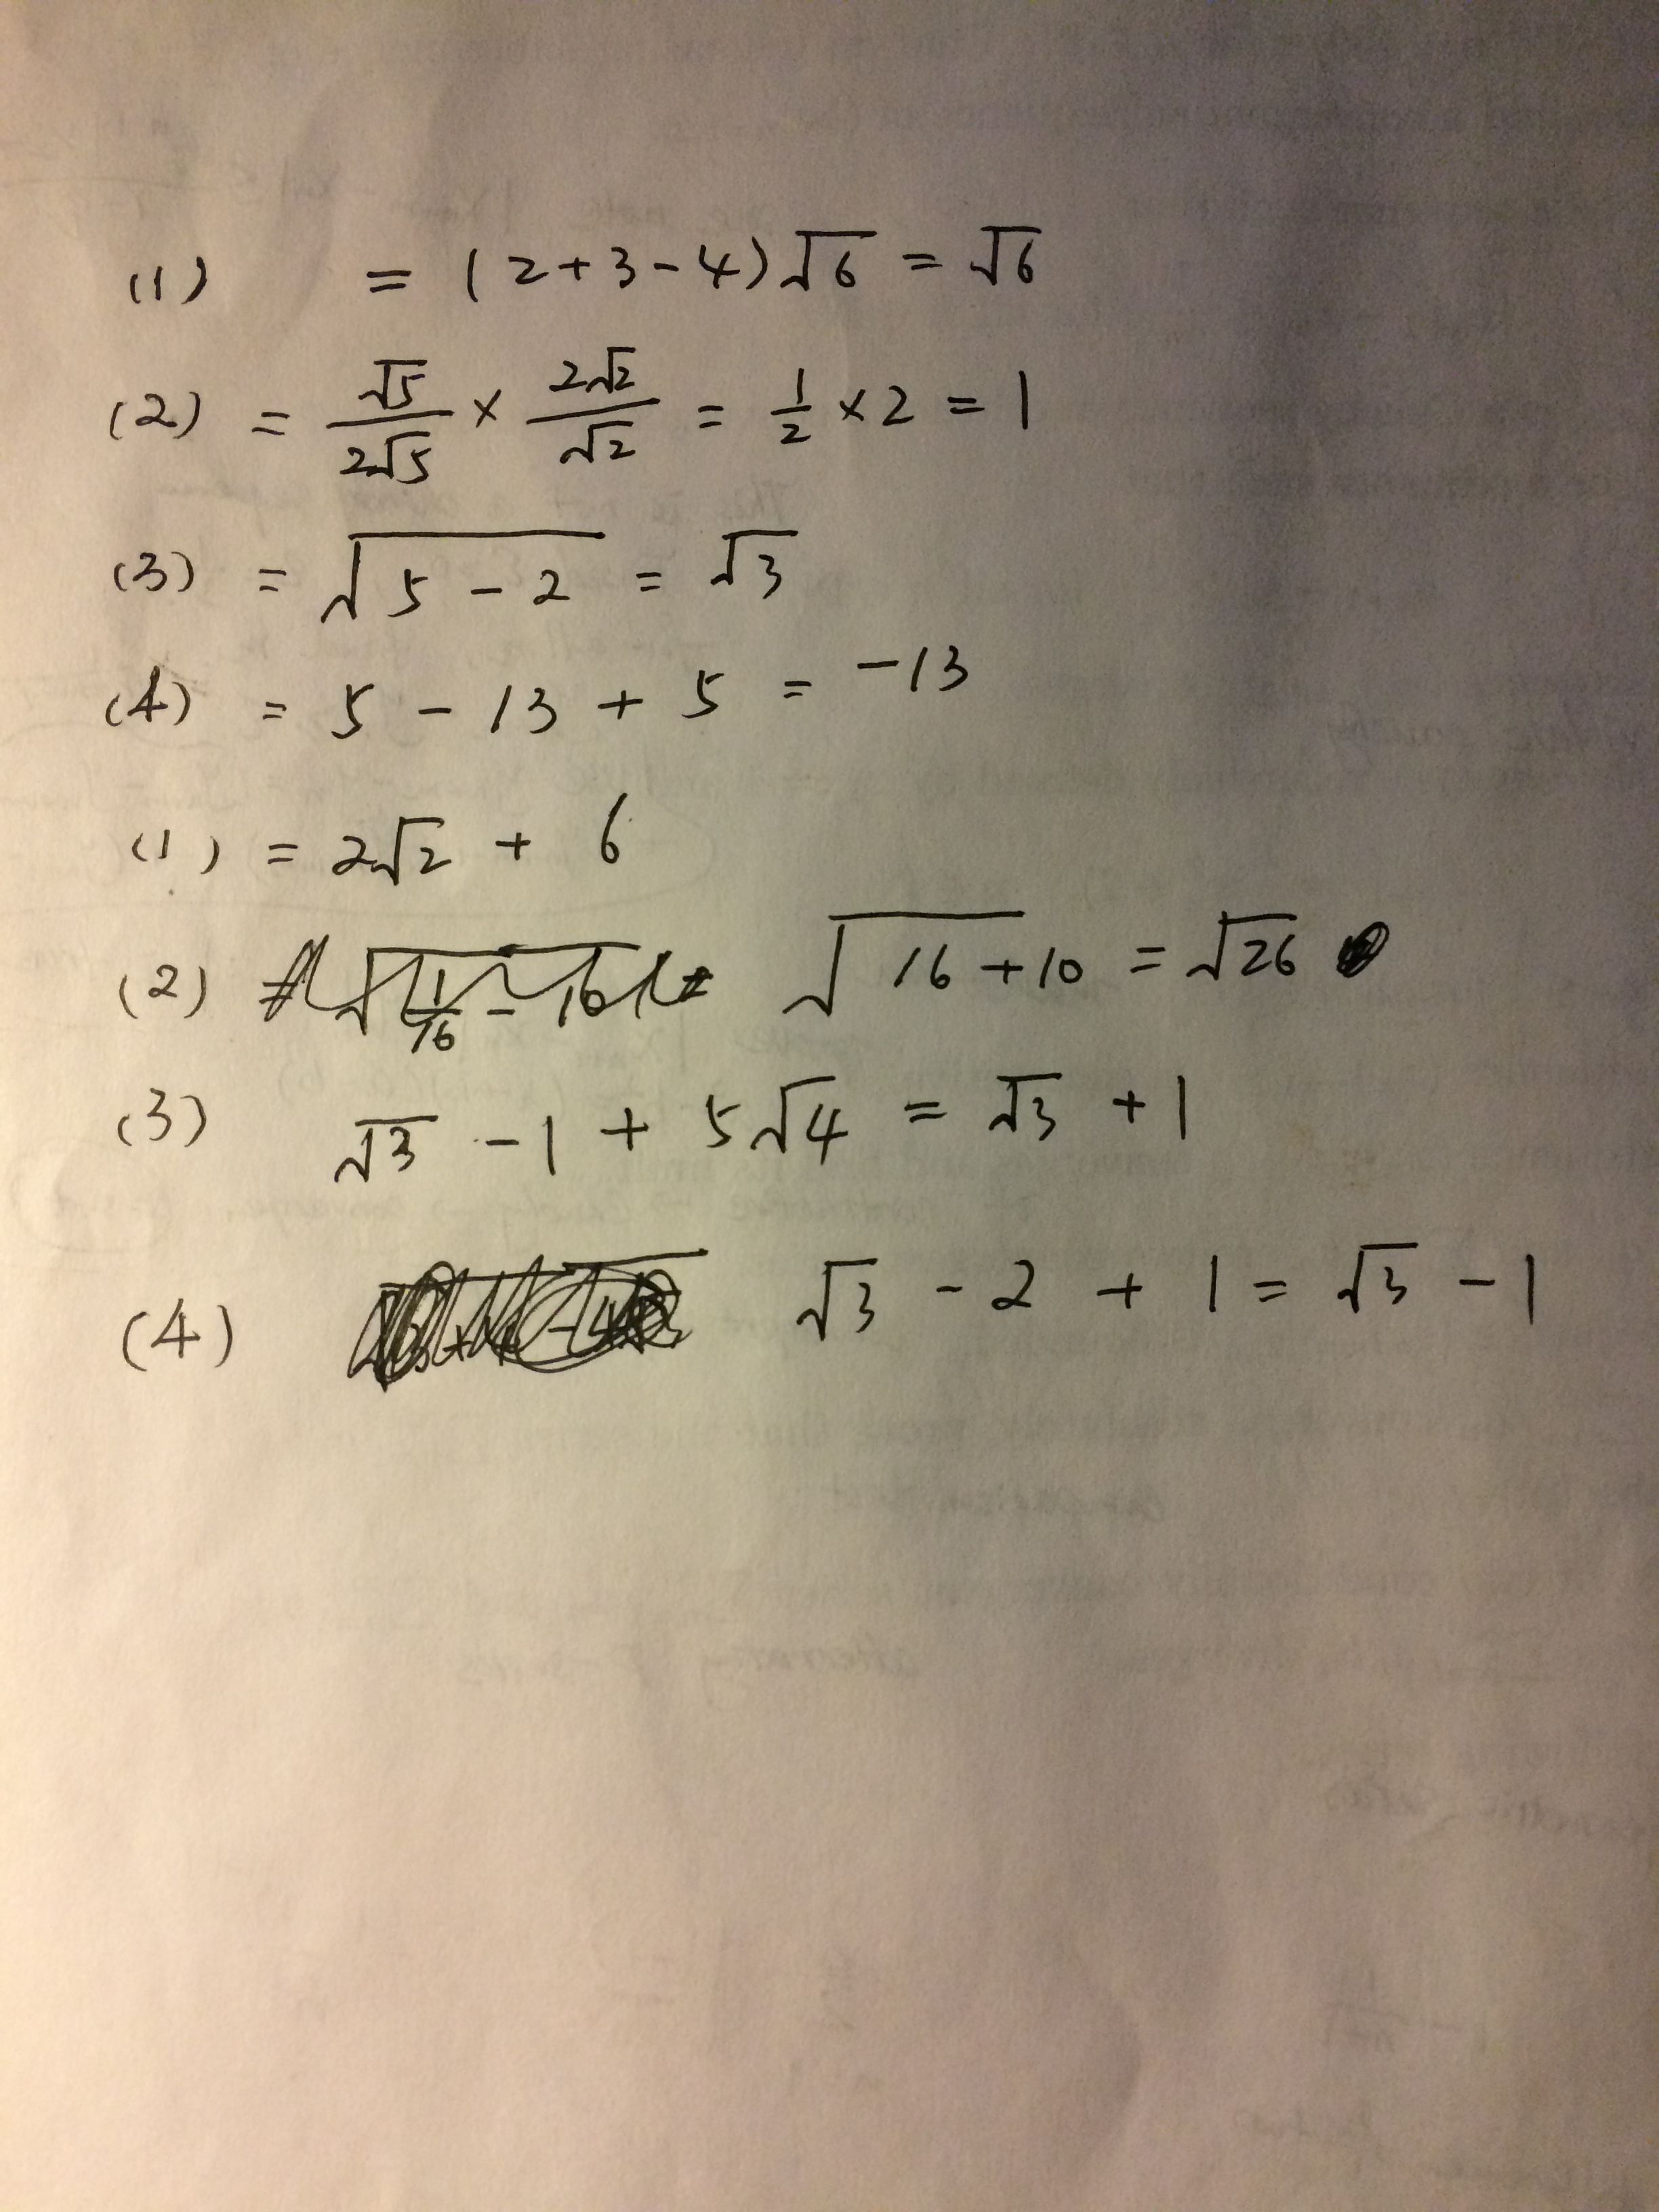 (1) = (2+3-4)√6 = √6
(2) = √5/2√5 × 2√2/√2 = 1/2 × 2 = 1
(3) = √(5-2) = √3
(4) = 5 - 13 + 5 = -13
(1) = 2√2 + 6
(2) √(16+10) = √26
(3) √3 - 1 + 5√4 = √3 + 1
(4) √3 - 2 + 1 = √3 - 1